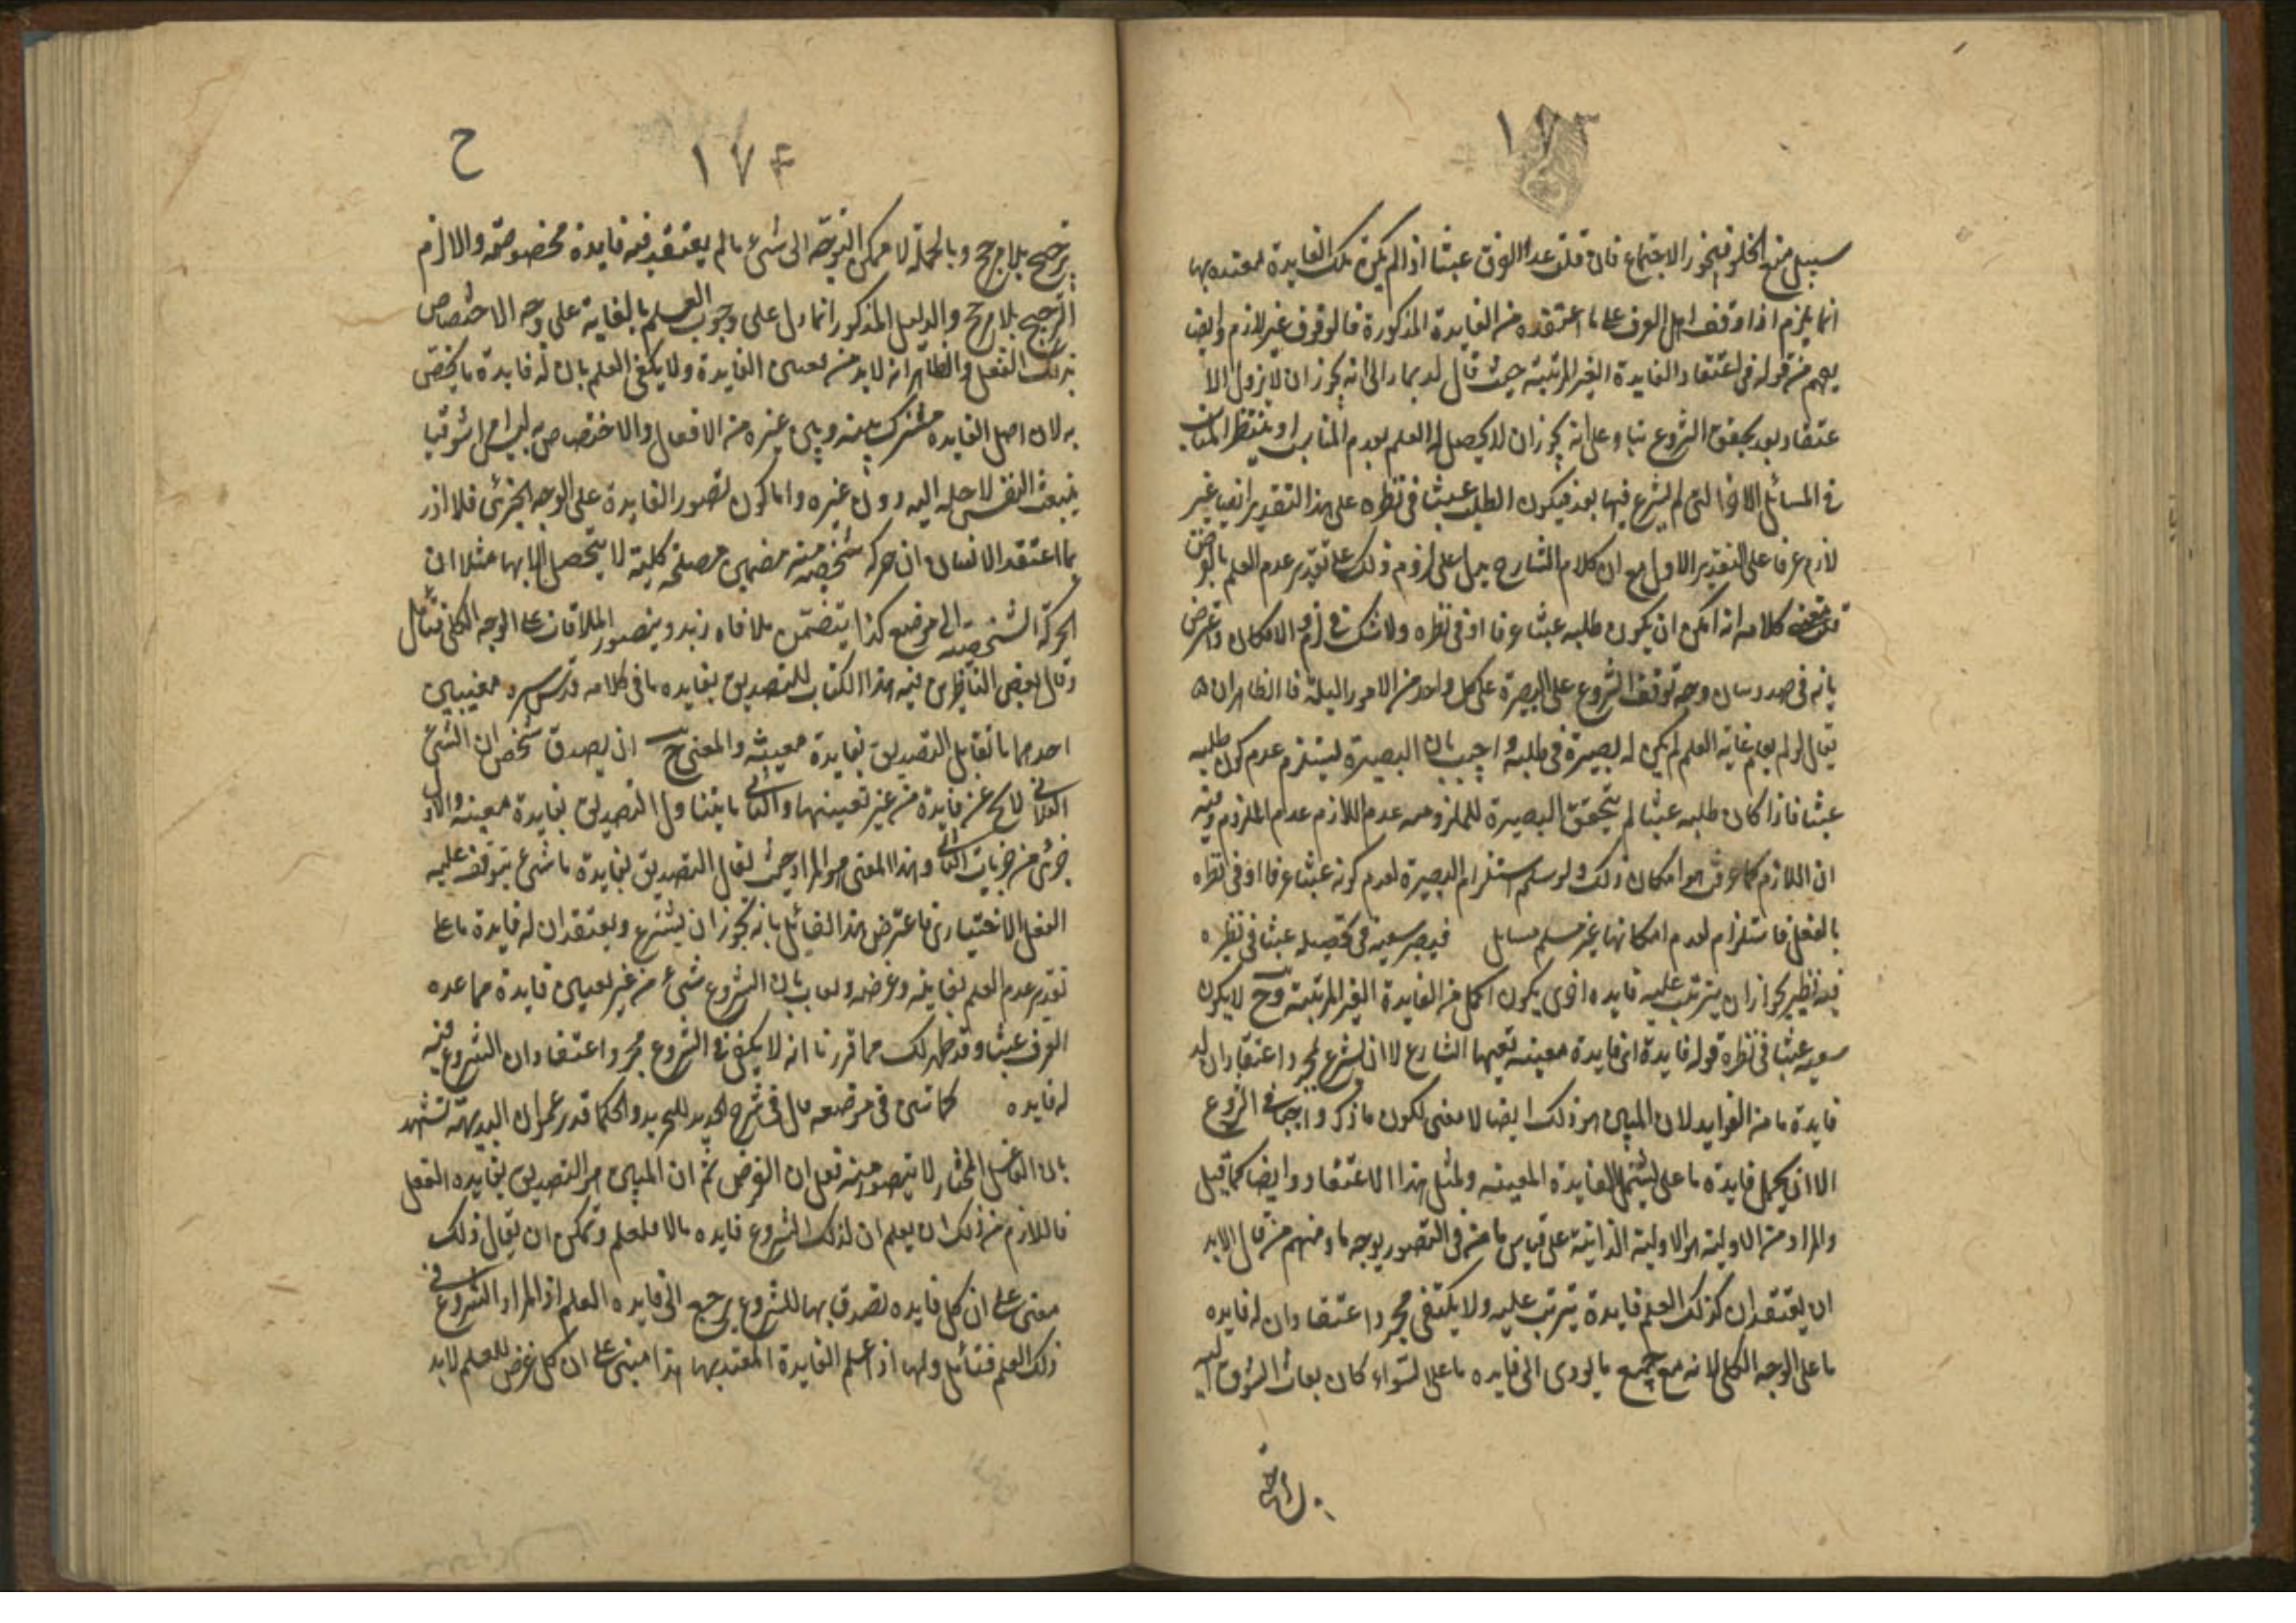 ١٧٣
سبيل منع الخلو فيجوز الاجتماع فان قلت عد العرف عبثا اذا لم يكن تلك الفايدة معتده بها
انما يلزم اذا وقف اهل العرف على ما اعتقده من الفايدة المذكورة فالوقوف غير لازم وايضا
يفهم من قوله في اعتقاد الفايدة الغير المرتبة حيث قال لربما زال انه يجوز ان لا يزول الا
عتقاد بعد تحقق الشروع بناء على انه يجوز ان لا يحصل له العلم بعدم المناسبة او ينتظر المناسبة
في المسائل الاخر التي لم يشرع فيها بعد فيكون الطلب عبثا في نظره على هذا التقدير ايضا غير
لازم عرفا على التقدير الاول مع ان كلام الشارح يدل على لزوم ذلك على تقدير عدم العلم بالغرض
قلت كلامه انه امكن ان يكون طلبه عبثا عرفا او في نظره ولا شك في لزوم الامكان واعترض
بانه في صدد بيان وجه توقف الشروع على البصيرة على كل واحد من الامور الثلثة فالظاهر ان
يقال لو لم يعلم غاية العلم لم يكن له بصيرة في طلبه واجيب بان البصيرة ليستلزم عدم كون طلبه
عبثا فاذا كان طلبه عبثا لم يتحقق البصيرة للملزومه عدم اللازم عدم الملزوم وفيه
ان اللازم كما عرفت هو امكان ذلك ولو سلم استلزام البصيرة لعدم كونه عبثا عرفا او في نظره
بالفعل فاستلزام لعدم امكانها غير مسلم مسايل فيصير سعيه في تحصيله عبثا في نظره
فيه نظير لجواز ان يترتب عليه فايده اخرى يكون اكمل من الفايدة الغير المرتبة وح لا يكون
سعيه عبثا في نظره قوله فايدة اى فايدة معينه تعيها الشارع لا ان لشرع لمجرد اعتقاد ان له
فايدة ما من الفوايد لان المبين هو ذلك ايضا لا معنى لكون ما ذكر واجبا في الشروع
الا ان يحمل فايدة ما على ليشتمل الفايدة المعينه ولمثل هذا الاعتقاد وايضا كما قيل
والمراد من الاولية هو الاولية الذاتية على قياس ما مر في التصور بوجه ما ومنهم من قال لابد
ان يعتقد ان كذلك العلم فايدة يترتب عليه ولا يكتفى بمجرد اعتقاد ان له فايده
ما على الوجه الكلي لانه مع جميع ما يودى الى فايده ما على السواء كان بعاث الشوق اليه
ح
١٧٤
ترجيح بلا مرجح وبالجملة لا يمكن التوجه الى شيء ما لم يعتقد فيه فايدة مخصوصة والا لزم
الترجيح بلا مرجح والدليل المذكور انما دل على وجوب العلم بالغاية على وجه الاختصاص
بذلك الفعل والظاهر انه لابد من تعين الفايدة ولا يكفى العلم بان له فايدة ما يختص
به لان اصل الفايده مشترك بينه وبين غيره من الافعال والاختصاص به ليس امرا شوقيا
ينبعث النفس لاجله اليه دون غيره واما كون تصور الفايدة على الوجه الجزئى فلا اذ ر
بما اعتقد الانسان ان حركة شخصية منه يتضمن مصلحة كلية لا يتحصل الا بها مثلا ان
الحركة الشخصية الى موضع كذا يتضمن ملاقاه زيد ويتصور الملاقات على الوجه الكلى فتأمل
وقال بعض الناظرين في هذا الكتاب للتصديق بفايده ما في كلامه قدس سره معنيين
احدهما ما تقابل التصديق بفايدة معينه والمعنى ح ان يصدق شخص ان الشئ
الفلاني لا يخ عن فايدة من غير تعيينها والثانى ما يتناول التصديق بفايدة معينه والاول
جزئى من جزئيات الثانى وهذا المعنى هو المراد حيث يقال التصديق بفايدة ما شئ يتوقف عليه
الفعل الاختيارى فاعترض هذا القائل بانه يجوز ان يشرع ويعتقد ان له فايدة ما على
تقدير عدم العلم بغايته وغرضه وبعاب بان الشروع شئ من غير تعيين فايدة مما عده
العرف عبثا وقد ظهر لك مما قررنا انه لا يكفى في الشروع مجرد اعتقاد ان الشروع فيه
له فايده كما تبين في موضعه قال في شرح الجديد للتجريد والحكما قد يدعون ان البديهة تشهد
بان الفاعل المختار لا يتصور منه فعل ان الغرض ثم ان المبين هو التصديق بفايده الفعل
فاللازم من ذلك ان يعلم ان لذلك الشروع فايده ما لا للعلم ويمكن ان يقال ذلك
مبنى على ان كل فايده تصدق بها للشروع يرجع الى فايده العلم اذ المراد الشروع في
ذلك العلم فتأمل ولها اذ اعلم الفايدة المعتد بها هذا مبنى على ان كل غرض للعلم لابد